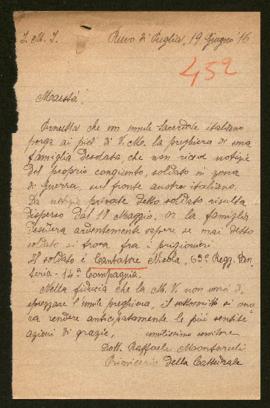 I. M. I. Ruvo di Puglia, 19 Giugno 16
452
Maestà,
Permetta che un umile sacerdote italiano
porga ai piedi di V. M. la preghiera di una
famiglia desolata, che non riceve notizie
del proprio congiunto, soldato in zona
di guerra, sul fronte austro italiano.
Da notizie private detto soldato risulta
disperso dal 18 Maggio, or la famiglia
desidera ardentemente sapere se mai detto
soldato si trova fra i prigionieri.
Il soldato è Cantatore Nicola, 63º Regg. Fan
teria - 14ª Compagnia.
Nella fiducia che la M. V. non mai di-
sprezzare l'umile preghiera, il sottoscritto si ono
ra rendere anticipatamente le più sentite
azioni di grazie, umilissimo servitore
Dott. Raffaele Montaruli
Primicerio della Cattedrale